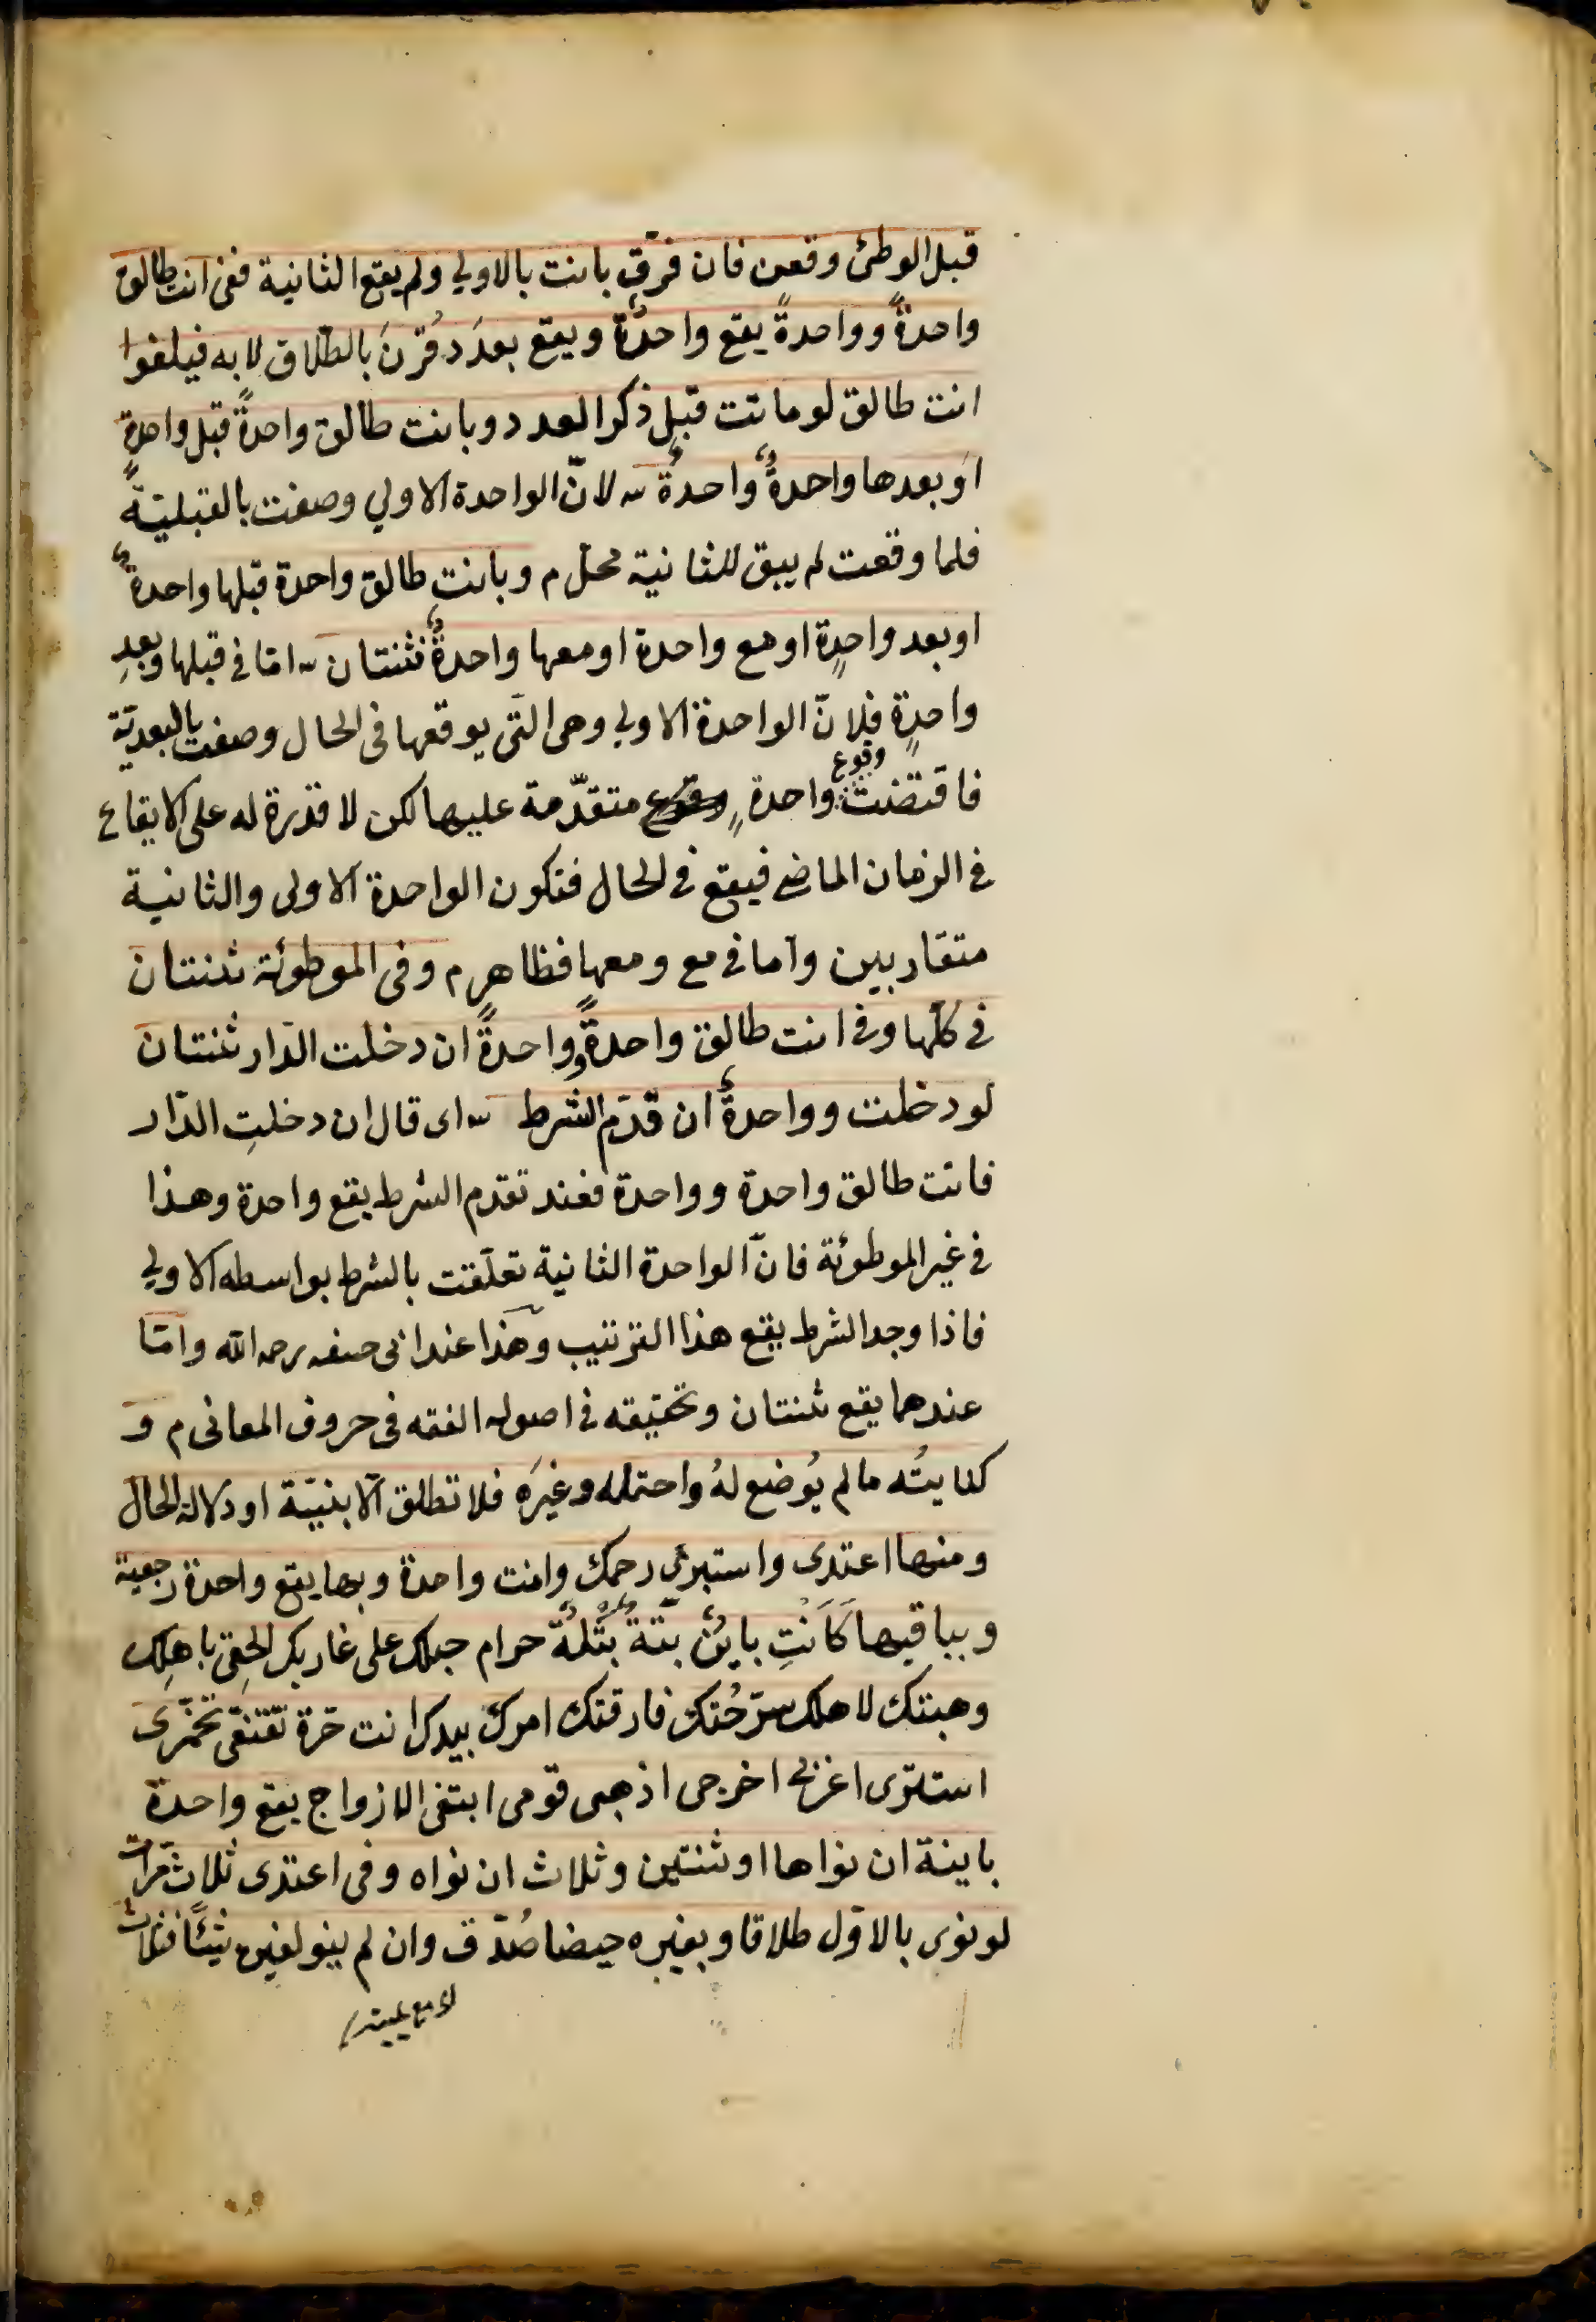 قبل الوطئ وقعن فان فرّق بانت بالاولي ولم يقع الثانية ففي انت طالق
واحدةً وواحدةً يقع واحدةٌ ويقع بعدَدٍ قُرِنَ بالطّلاق لا به فيلغوا
انت طالق لو ماتت قبل ذكر العدد وبانت طالق واحدةً قبل واحدةٍ
او بعدها واحدةٌ واحدةٌ ش لانّ الواحدة الاولي وصفت بالقبليّة
فلما وقعت لم يبق للثانية محل م وبانت طالق واحدة قبلها واحدةٌ
او بعد واحدٍة او مع واحدة او معها واحدةٌ ثنتان ش امّا في قبلها وبعدِ
واحدٍة فلانّ الواحدة الاولي وهى التى يوقعها فى الحال وصفت بالبعديّة
فاقتضت وقوع واحدةٍ متقدّمة عليها لكن لا قدرة له على الايقاع
في الزمان الماضي فيقع في الحال فتكون الواحدة الاولى والثانية
متقاربين وامّا في مع ومعها فظاهر م وفى الموطوئة ثنتان
في كلّها وفي انت طالق واحدةً وواحدةً ان دخلت الدّار ثنتان
لو دخلت وواحدةٌ ان قدّم الشرط ش اى قال ان دخلتِ الدّار
فانت طالق واحدة وواحدة فعند تقدم الشرط يقع واحدة وهذا
في غير الموطوئة فانّ الواحدة الثانية تعلّقت بالشرط بواسطه الاولي
فاذا وجد الشرط يقع هذا الترتيب وهذا عند ابى حنيفه رحمه الله وامّا
عندهما يقع ثنتان وتحقيقه في اصول الفقه فى حروف المعانى م و
كنايتُه ما لم يُوضع لهُ واحتمله وغيرَه فلا تطلق الّا بنيّة او دلالة الحال
ومنها اعتدى واستبرئى رحمك وانت واحدة وبها يقع واحدة رجعية
وبباقيها كَاَنْتِ باينٌ بتّةٌ بَتْلةٌ حرام حبلك على غاربك الحقى باهلِك
وهبتك لاهلك سرّحُتك فارقتك امرك بيدك انت حرّة تقنّعى تخمّرى
استترى اغزبي اخرجى اذهبى قومى ابتغى الازواج يقع واحدة
باينة ان نواها او ثنتين وثلاث ان نواه وفى اعتدى ثلاث مرّات
لو نوى بالاوّل طلاقا وبغيره حيضا صُدّق وان لم ينو لغيره شيئًا فثلاث